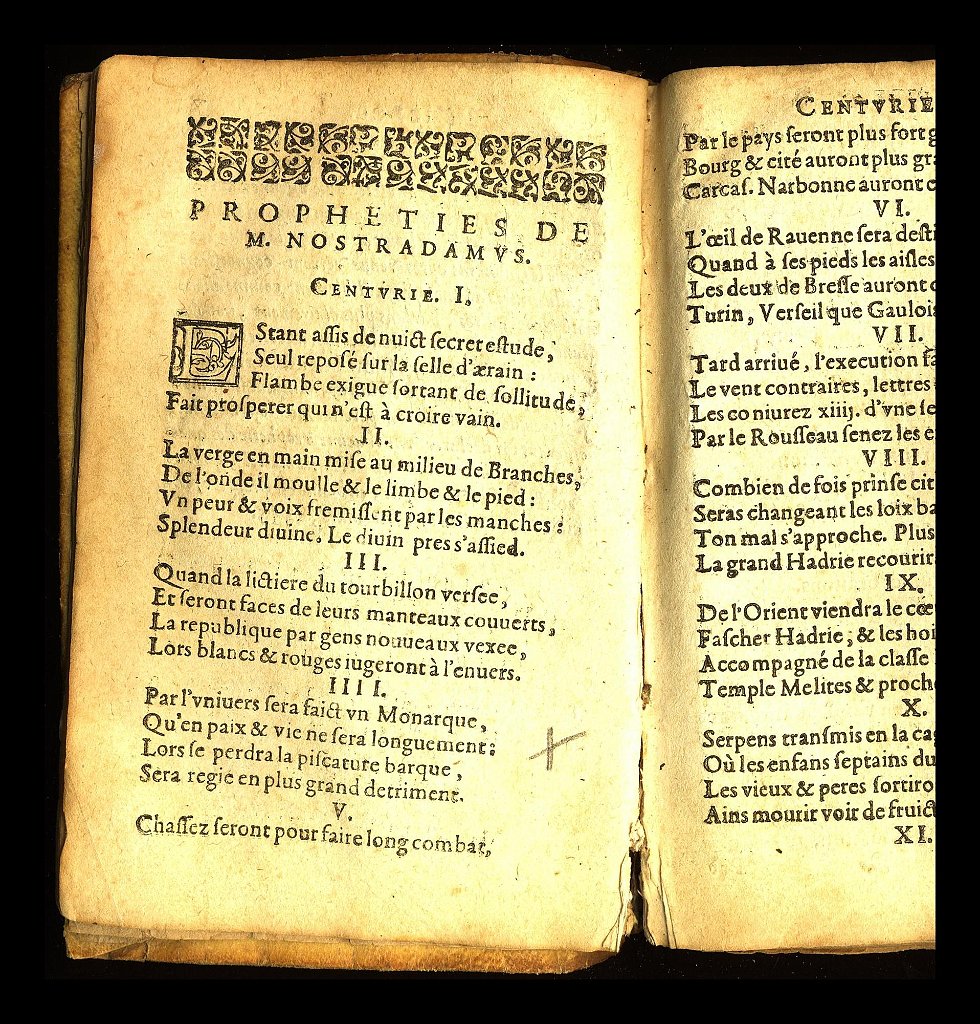 PROPHETIES DE
M. NOSTRADAMVS.
CENTVRIE. I.
EStant aſſis de nuict ſecret eſtude,
Seul repoſé ſur la ſelle d'ærain :
Flambe exigue ſortant de ſollitude,
Fait proſperer qui n'eſt à croire vain.
II.
La verge en main miſe au milieu de Branches,
De l'onde il moulle & le limbe & le pied :
Vn peur & voix fremiſſent par les manches :
Splendeur diuine. Le diuin pres s'aſſied.
III.
Quand la lictiere du tourbillon verſee,
Et ſeront faces de leurs manteaux couuerts,
La republique par gens nouueaux vexee,
Lors blancs & rouges iugeront à l'enuers.
IIII.
Par l'vniuers ſera faict vn Monarque,
Qu'en paix & vie ne ſera longuement:
Lors ſe perdra la piſcature barque,
Sera regie en plus grand detriment.
V.
Chaſſez ſeront pour faire long combat,
CENTVRIE
Par le pays ſeront plus fort g
Bourg & cité auront plus gra
Carcaſ. Narbonne auront c
VI.
L'œil de Rauenne ſera deſti
Quand à ſes pieds les aiſles
Les deux de Breſſe auront c
Turin, Verſeil que Gaulois
VII.
Tard arriué, l'execution fa
Le vent contraires, lettres
Les coniurez xiiij. d'vne ſe
Par le Rouſſeau ſenez les e
VIII.
Combien de fois prinſe cit
Seras changeant les loix ba
Ton mal s'approche. Plus
La grand Hadrie recourir
IX.
De l'Orient viendra le cœ
Faſcher Hadrie, & les hoi
Accompagné de la claſſe
Temple Melites & proch
X.
Serpens tranſmis en la cag
Où les enfans ſeptains du
Les vieux & peres ſortiro
Ains mourir voir de fruict
XI.